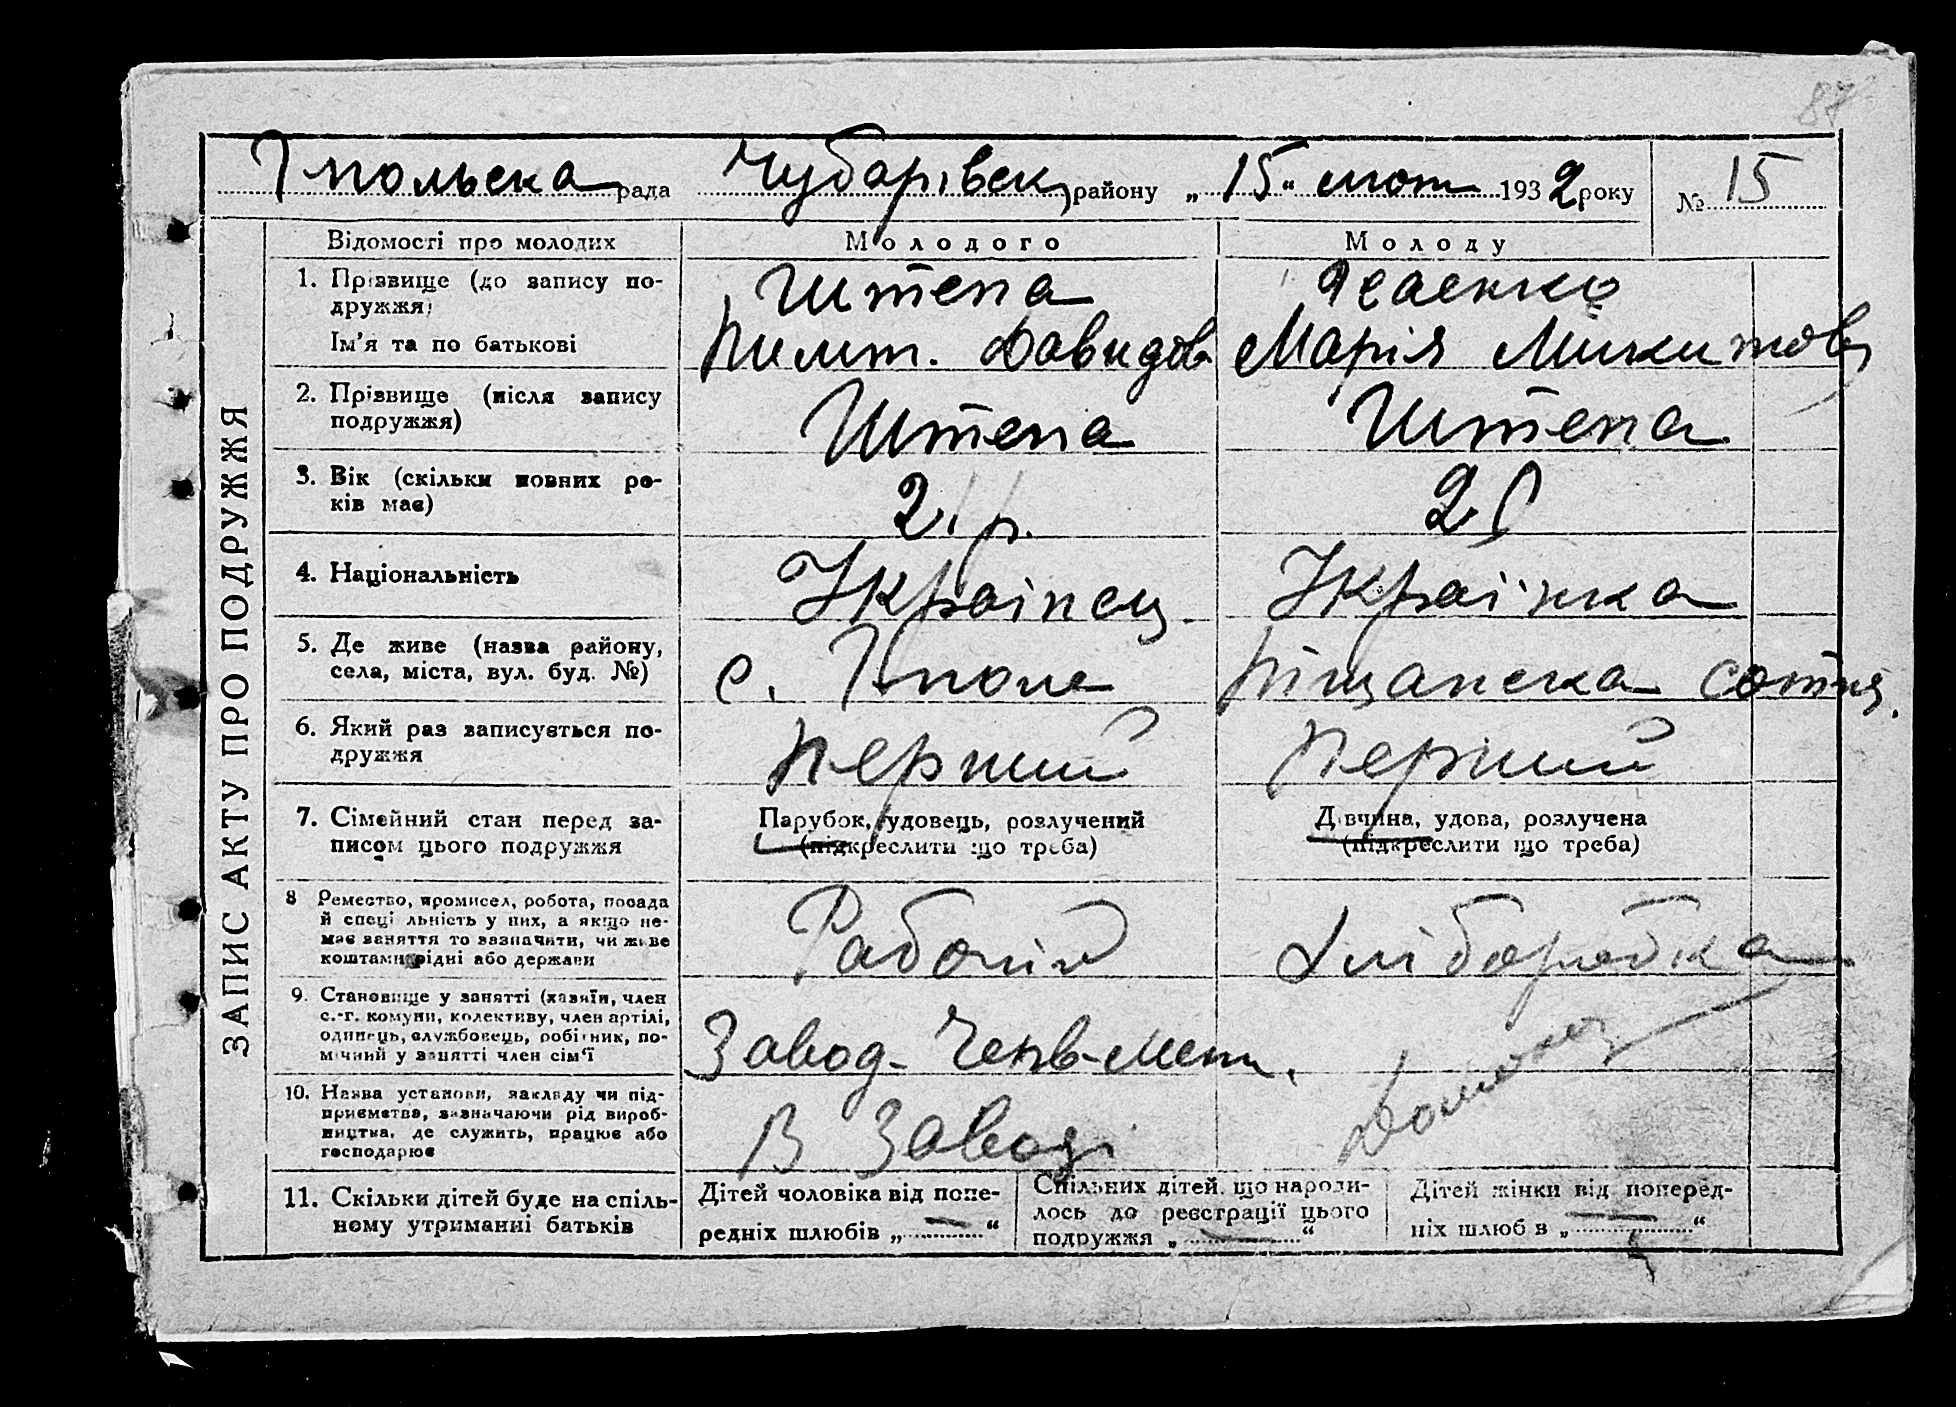 87
Гпольска рада Чубарівськ району „15“ лют 1932 року № 15
ЗАПИС АКТУ ПРО ПОДРУЖЖЯ
Відомості про молодих
Молодого
Молоду
1. Прізвище (до запису по-
дружжя)
Штепа
Ім'я та по батькові
Давидов
Марія Микитов
2. Прізвище (після запису
подружжя)
Штепа
Штепа
3. Вік (скільки повних ро-
ків має)
21 р.
4. Національність
Українец.
Українка
5. Де живе (назва району,
села, міста, вул. буд. №)
с. Гполе
Піщанска сотня.
6. Який раз записується по-
дружжя
перший
перший
7. Сімейний стан перед за-
писом цього подружжя
Парубок, удовець, розлучений
(підкреслити що треба)
Дівчина, удова, розлучена
(підкреслити що треба)
8 Ремество, промисел, робота, посада
й спеціяльність у них, а якщо не-
має заняття то зазначити, чи живе
коштами рідні або держави
Рабочій
Хліборобка
9. Становище у занятті (хазяїн, член
с.-г. комуни, колективу, член артілі,
одинець, службовець, робітник, по-
мічний у занятті член сім'ї
Завод-
10. Назва установи, закладу чи під-
приємства, зазначаючи рід вироб-
ництва, де служить, працює або
господарює
В Заводі
11. Скільки дітей буде на спіль-
ному утриманні батьків
Дітей чоловіка від попе-
редніх шлюбів „ — “
Спільних дітей, що народи-
лось до реєстрації цього
подружжя „ — “
Дітей жінки від поперед-
ніх шлюбів „ — “